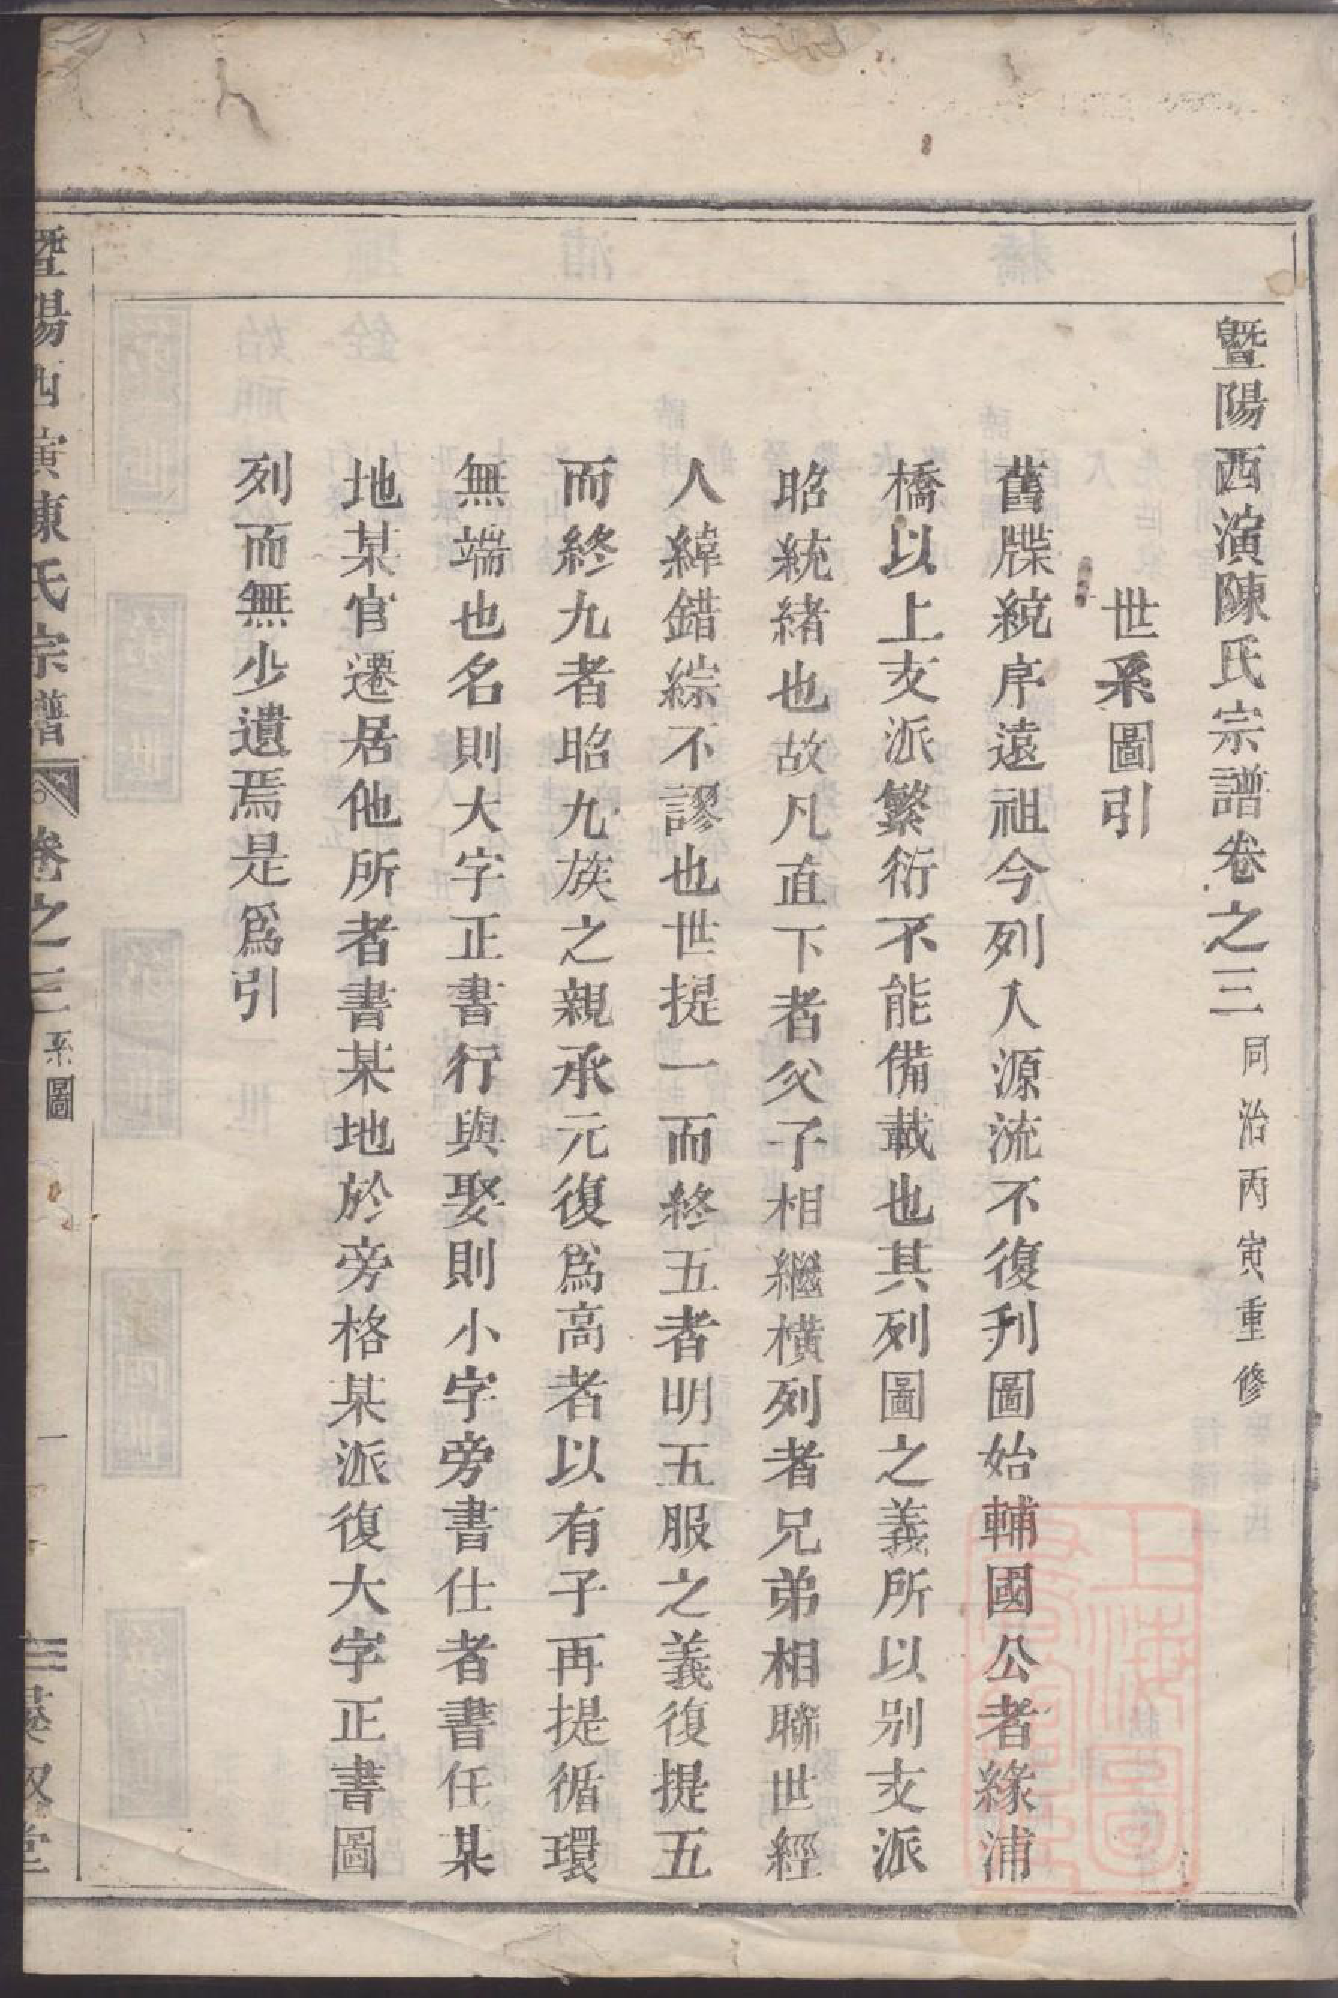 暨陽西演陳氏宗譜卷之三 同治丙寅重修
世系圖引
舊牒統序遠祖今列入源流不復刋圖始輔國公者緣浦
橋以上支派繁衍不能備載也其列圖之義所以别支派
昭統緒也故凡直下者父子相繼橫列者兄弟相聯世經
人緯錯綜不謬也世提一而終五者明五服之義復提五
而終九者昭九族之親承元復爲高者以有子再提循環
無端也名則大字正書行與娶則小字旁書仕者書任某
地某官遷居他所者書某地於旁格某派復大字正書圖
列而無少遺焉是爲引
暨陽西演陳氏宗譜 卷之三 系圖 一
上海圖書館藏